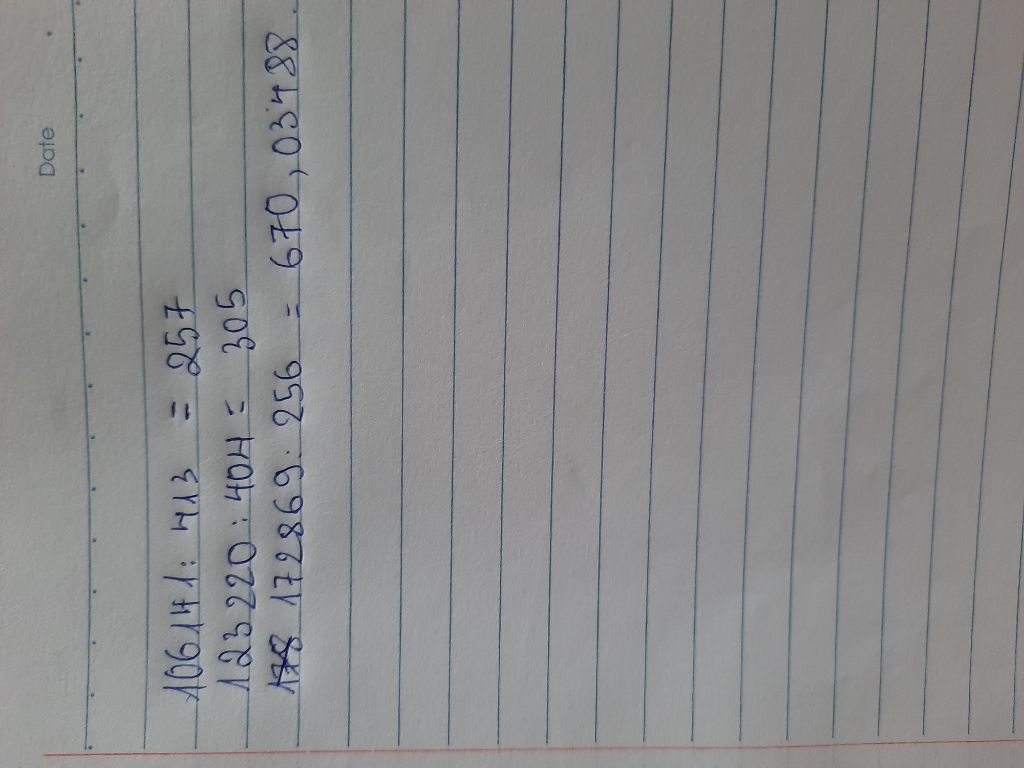 Date
106141 : 413 = 257
123220 : 404 = 305
172869 : 256 = 670,03488